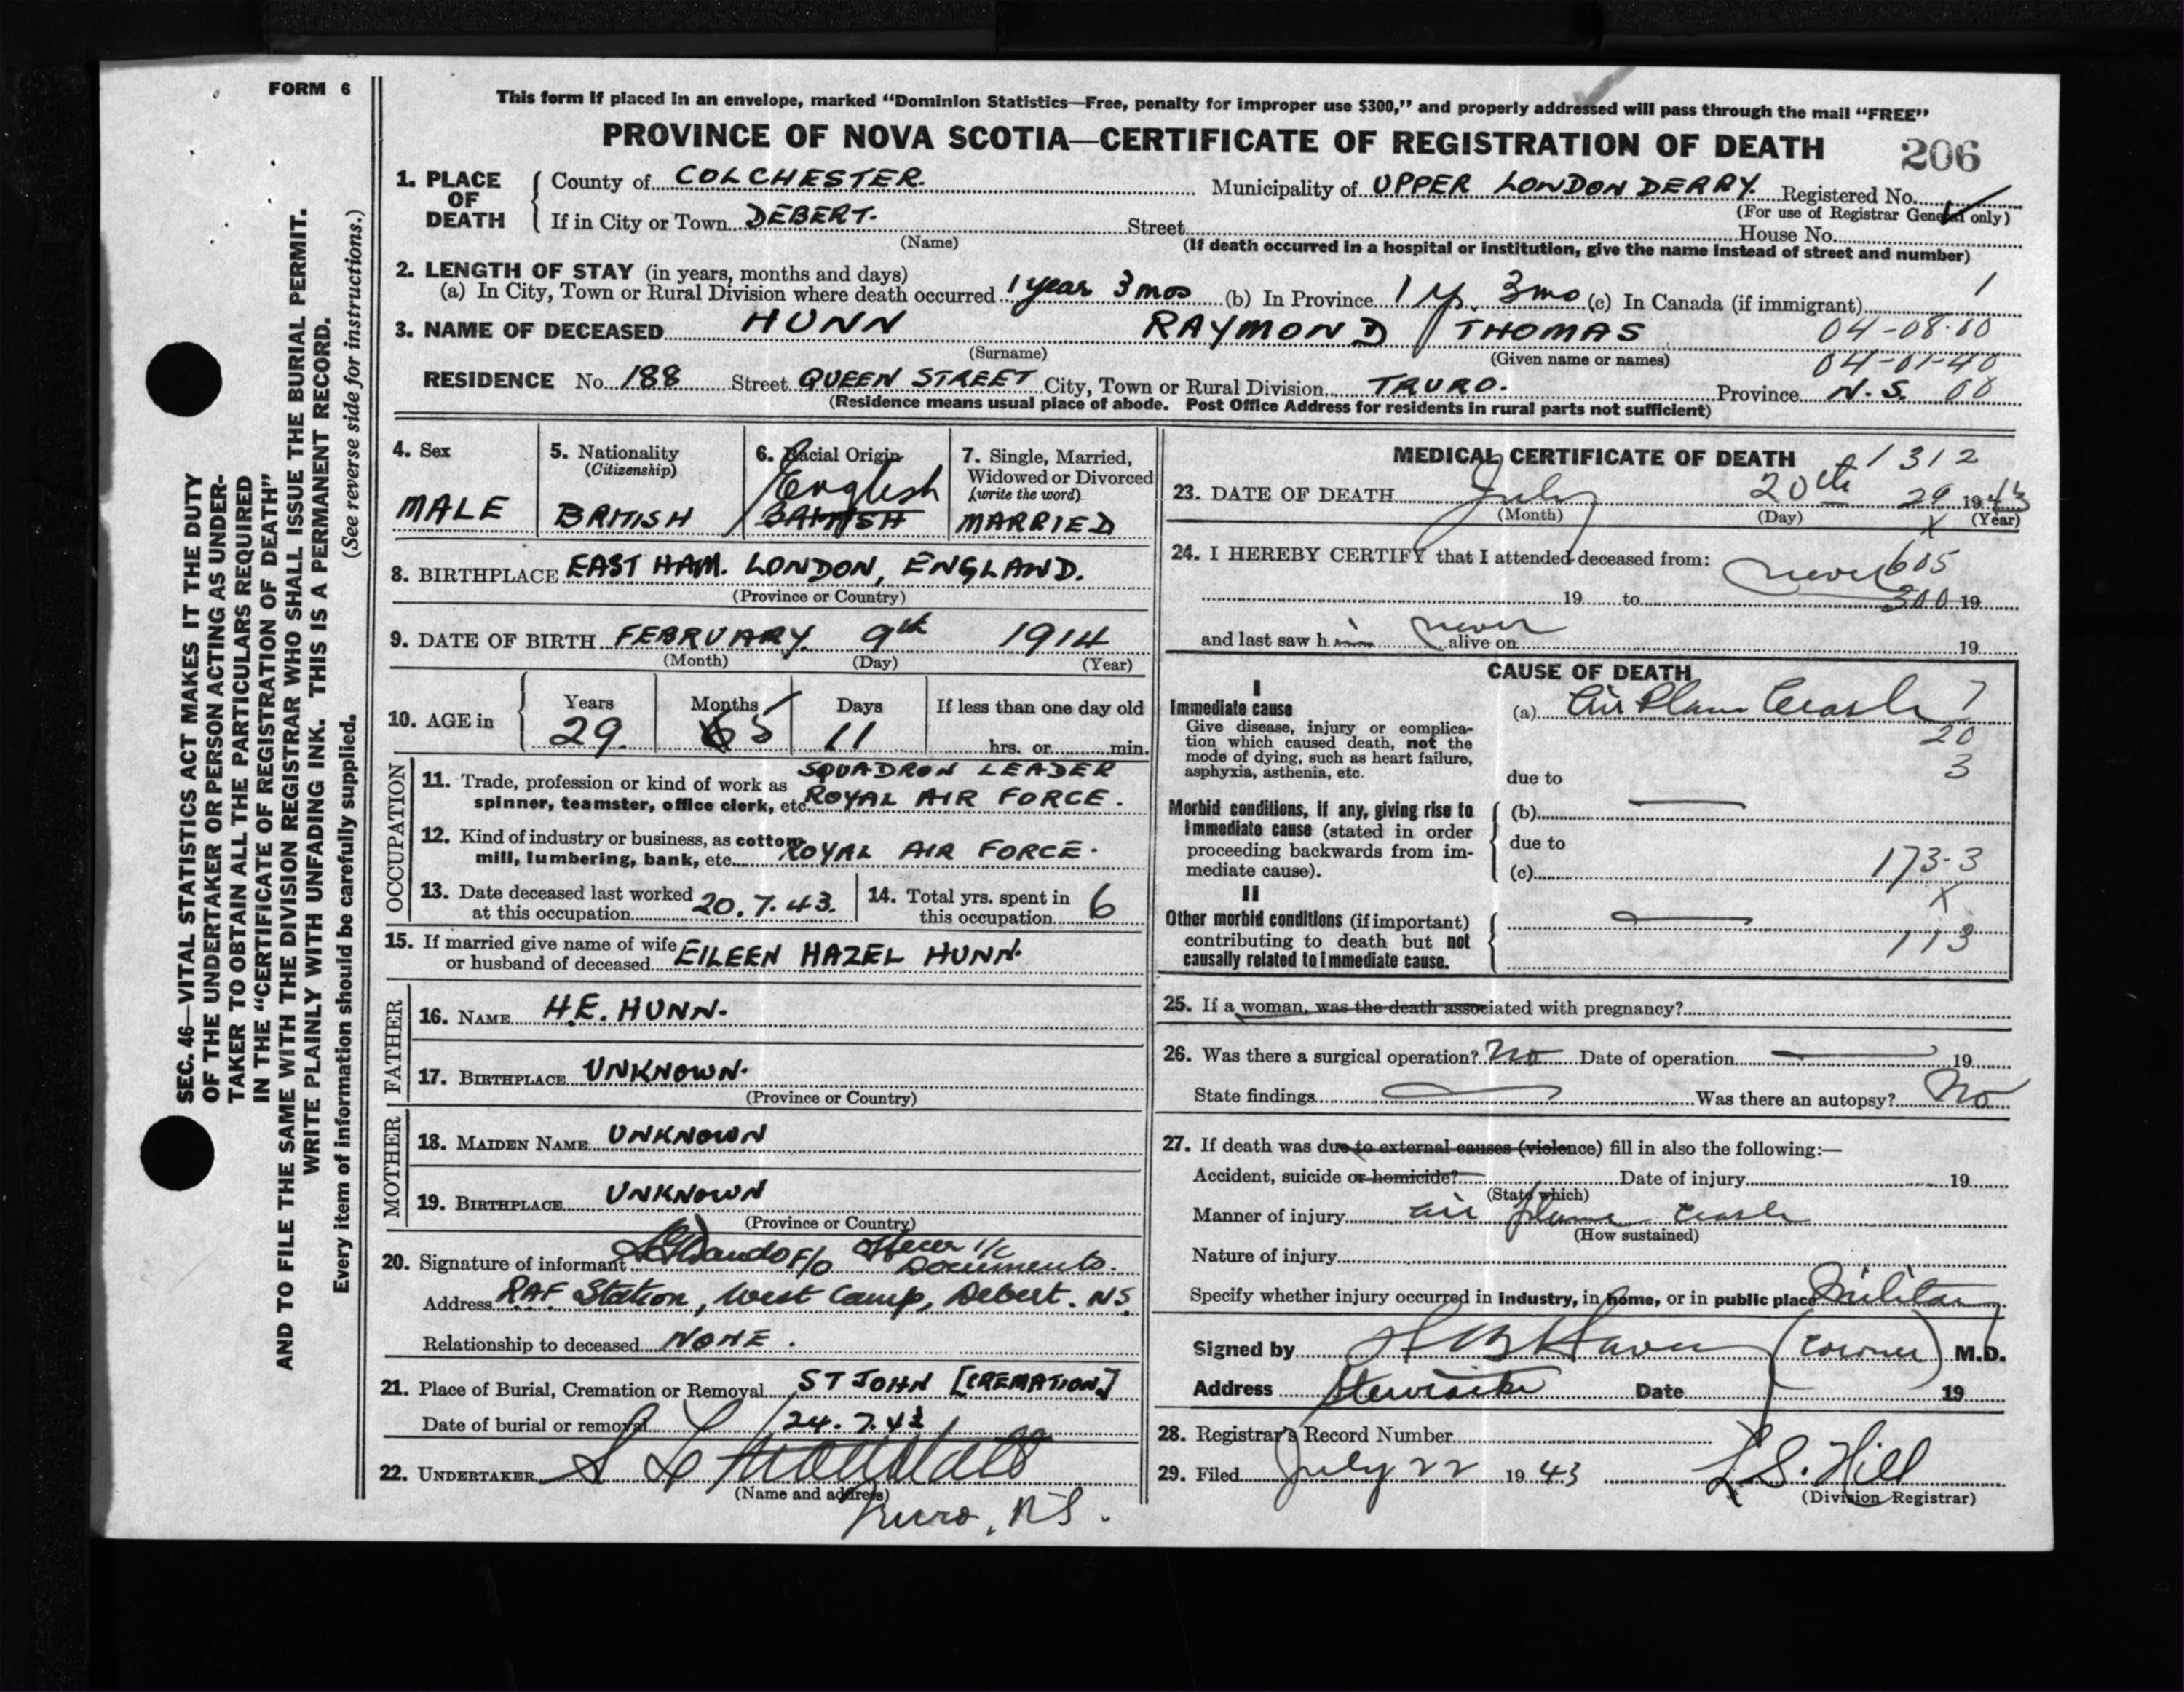 FORM 6
This form if placed in an envelope, marked “Dominion Statistics—Free, penalty for improper use $300,” and properly addressed will pass through the mail “FREE”
PROVINCE OF NOVA SCOTIA—CERTIFICATE OF REGISTRATION OF DEATH 206
1. PLACE OF DEATH
County of COLCHESTER. Municipality of UPPER LONDONDERRY. Registered No.
(For use of Registrar General only)
If in City or Town DEBERT. Street House No.
(Name) (If death occurred in a hospital or institution, give the name instead of street and number)
2. LENGTH OF STAY (in years, months and days)
(a) In City, Town or Rural Division where death occurred 1 year 3 mos (b) In Province 1 yr. 3 mo (c) In Canada (if immigrant) 1
3. NAME OF DECEASED HUNN RAYMOND THOMAS 04-08-60
(Surname) (Given name or names) 04-01-40
RESIDENCE No. 188 Street QUEEN STREET City, Town or Rural Division TRURO. Province N.S. 00
(Residence means usual place of abode. Post Office Address for residents in rural parts not sufficient)
4. Sex
MALE
5. Nationality
(Citizenship)
BRITISH
6. Racial Origin
English
BRITISH
7. Single, Married,
Widowed or Divorced
(write the word)
MARRIED
8. BIRTHPLACE EAST HAM. LONDON, ENGLAND.
(Province or Country)
9. DATE OF BIRTH FEBRUARY. 9th 1914
(Month) (Day) (Year)
10. AGE in
Years Months Days If less than one day old
29. 5 11 hrs. or min.
OCCUPATION
11. Trade, profession or kind of work as SQUADRON LEADER
spinner, teamster, office clerk, etc. ROYAL AIR FORCE.
12. Kind of industry or business, as cotton
mill, lumbering, bank, etc. ROYAL AIR FORCE.
13. Date deceased last worked
at this occupation 20.7.43.
14. Total yrs. spent in
this occupation 6
15. If married give name of wife
or husband of deceased EILEEN HAZEL HUNN.
FATHER
16. NAME H.E. HUNN.
17. BIRTHPLACE UNKNOWN.
(Province or Country)
MOTHER
18. MAIDEN NAME UNKNOWN
19. BIRTHPLACE UNKNOWN
(Province or Country)
20. Signature of informant F/O Officer i/c Documents.
Address RAF Station, West Camp, Debert. N.S.
Relationship to deceased NONE.
21. Place of Burial, Cremation or Removal ST JOHN [CREMATION]
Date of burial or removal 24.7.43
22. UNDERTAKER
(Name and address)
Truro, N.S.
MEDICAL CERTIFICATE OF DEATH 1312
23. DATE OF DEATH July 20th 29 1943
(Month) (Day) X (Year)
24. I HEREBY CERTIFY that I attended deceased from: never 605
19 to 300 19
and last saw him never alive on 19
CAUSE OF DEATH
I
Immediate cause
Give disease, injury or complication
which caused death, not the
mode of dying, such as heart failure,
asphyxia, asthenia, etc.
(a) Air Plane Crash 7
20
3
due to
Morbid conditions, if any, giving rise to
immediate cause (stated in order
proceeding backwards from immediate
cause).
(b)
due to
(c) 173-3
X
II
Other morbid conditions (if important)
contributing to death but not
causally related to immediate cause.
113
25. If a woman, was the death associated with pregnancy?
26. Was there a surgical operation? No Date of operation 19
State findings Was there an autopsy? No
27. If death was due to external causes (violence) fill in also the following:—
Accident, suicide or homicide? Date of injury 19
(State which)
Manner of injury air plane crash
(How sustained)
Nature of injury
Specify whether injury occurred in industry, in home, or in public place Military
Signed by (Coroner) M.D.
Address Stewiacke Date 19
28. Registrar's Record Number
29. Filed July 22 1943 L.S. Hill
(Division Registrar)
SEC. 46—VITAL STATISTICS ACT MAKES IT THE DUTY
OF THE UNDERTAKER OR PERSON ACTING AS UNDER-
TAKER TO OBTAIN ALL THE PARTICULARS REQUIRED
IN THE “CERTIFICATE OF REGISTRATION OF DEATH”
AND TO FILE THE SAME WITH THE DIVISION REGISTRAR WHO SHALL ISSUE THE BURIAL PERMIT.
WRITE PLAINLY WITH UNFADING INK. THIS IS A PERMANENT RECORD.
Every item of information should be carefully supplied. (See reverse side for instructions.)